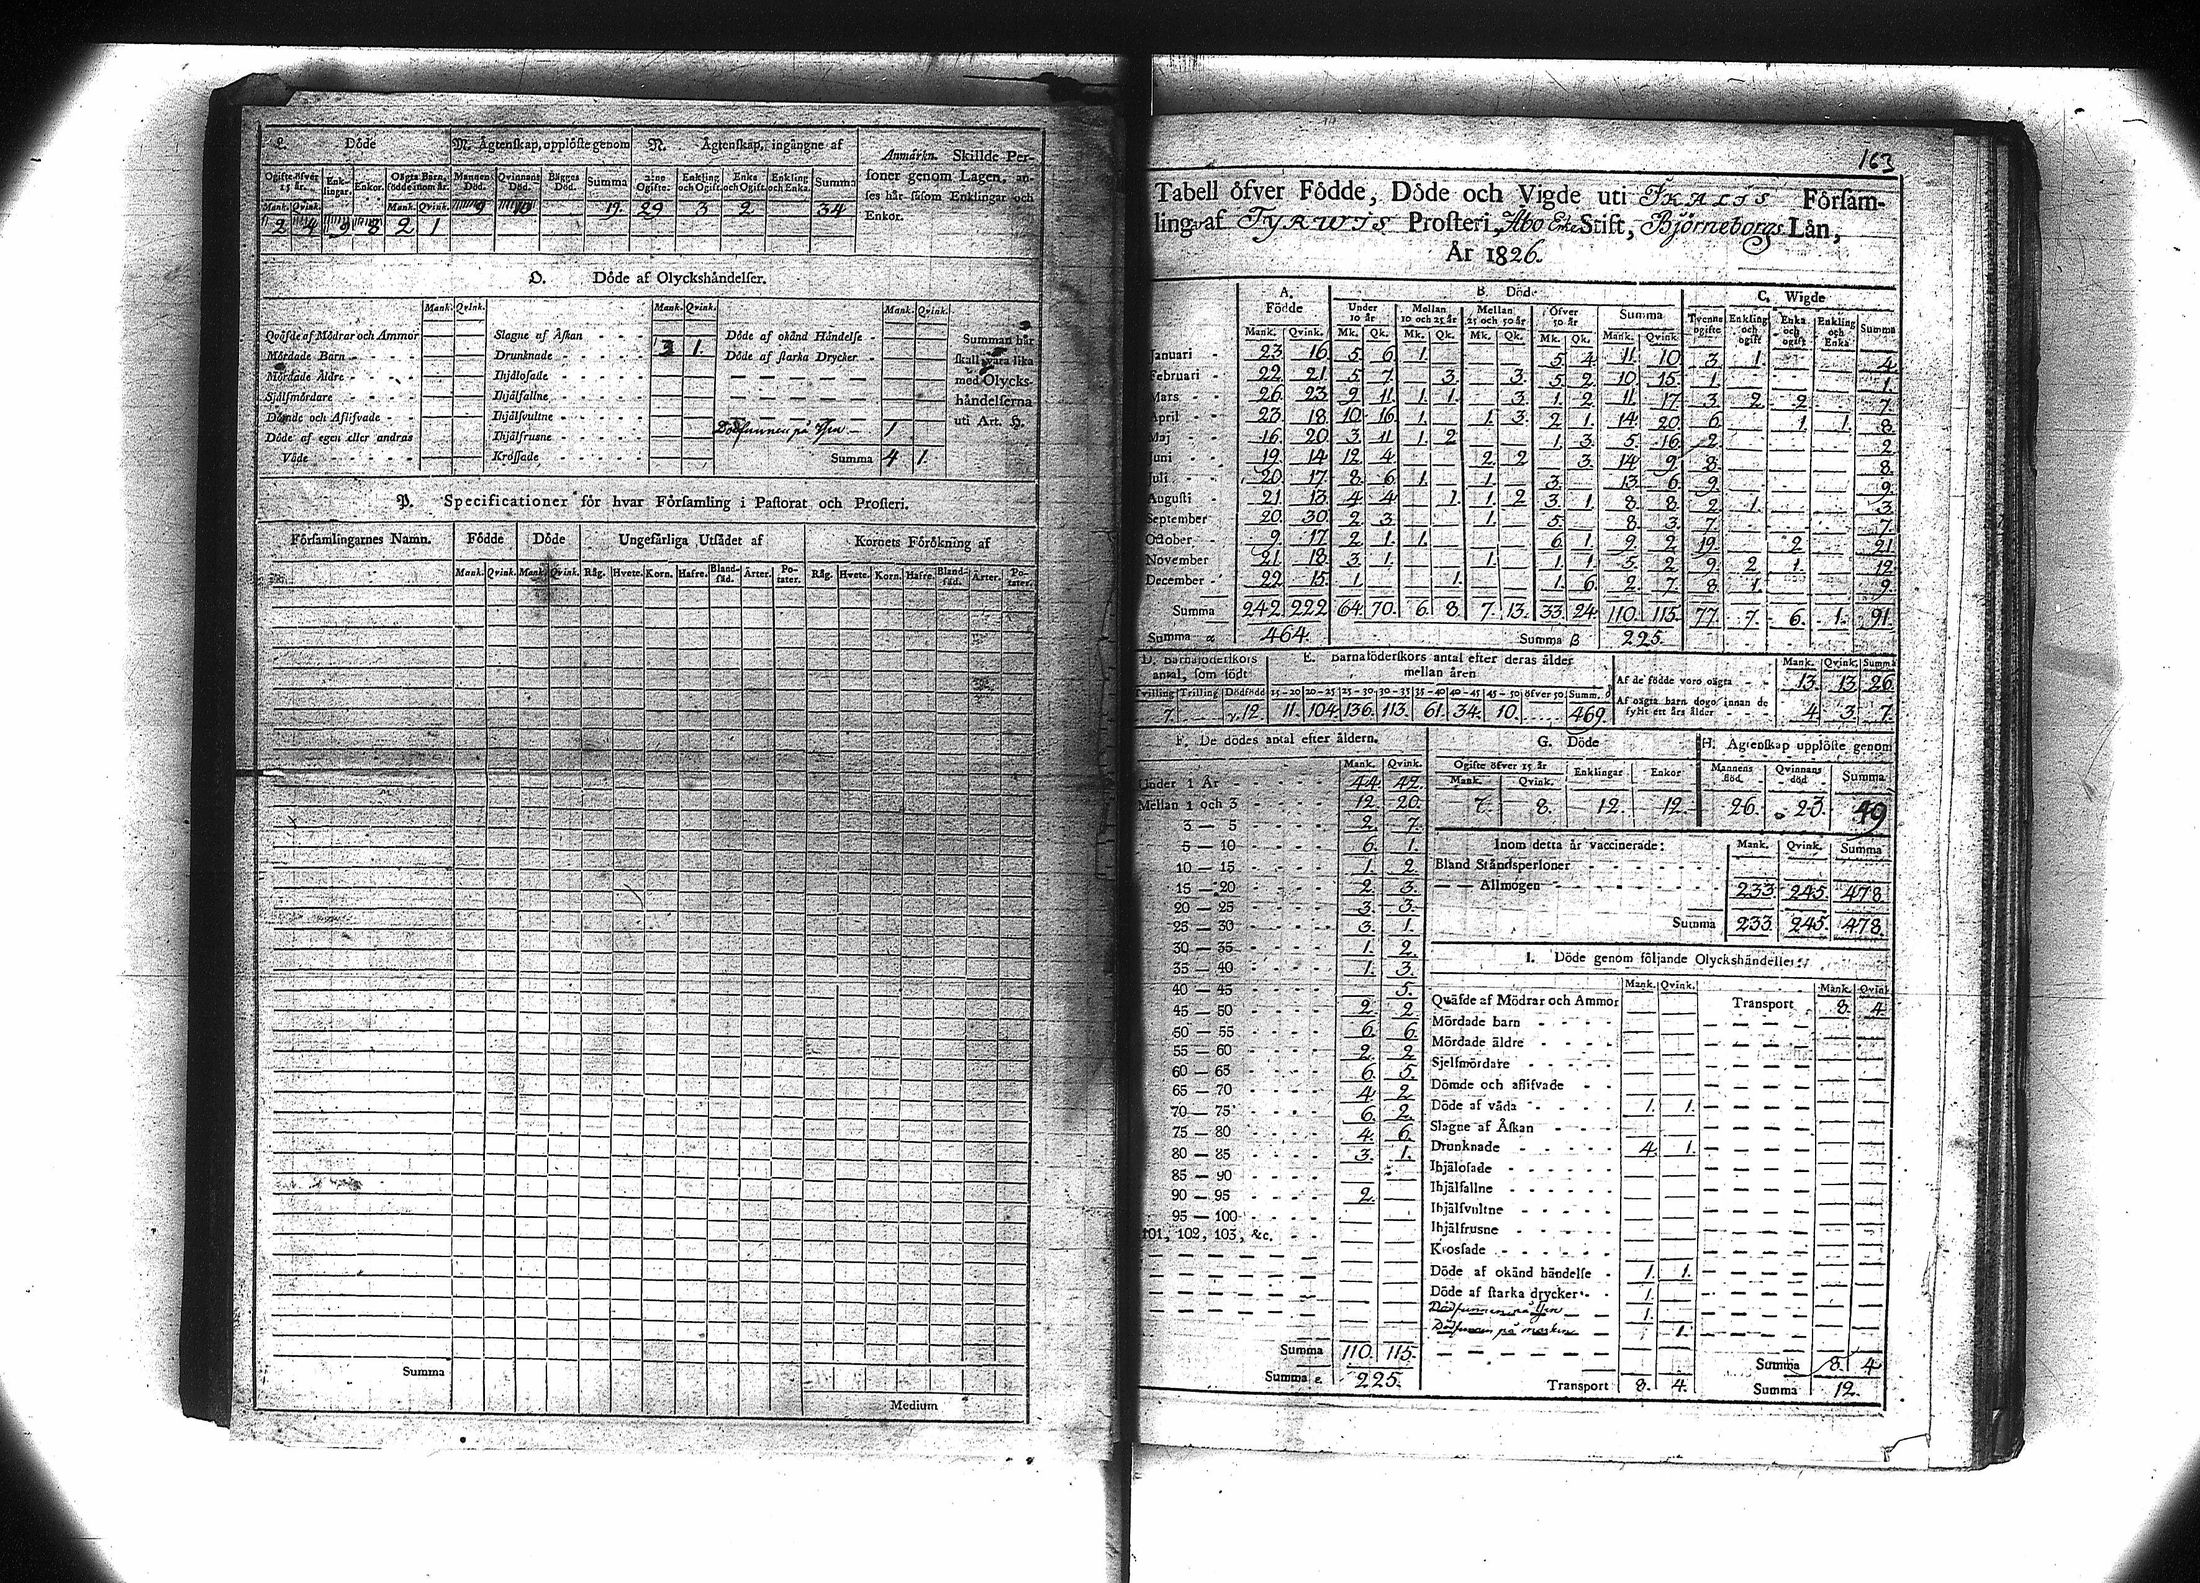 L. Döde
M. Ägtenskap, upplöste genom
N. Ägtenskap, ingångne af
Anmärkn. Skillde Per-
soner genom Lagen, an-
ses här såsom Enklingar och
Enkor.
Ogifte öfver 15 år. Enklingar. Enkor. Oägta Barn, födde inom år. Mannens Död. Qvinnans Död. Bägges Död. Summa 2:ne Ogifte. Enkling och Ogift. Enka och Ogift. Enkling och Enka. Summa
Mank. Qvink. Mank. Qvink.
2 4 9 8 2 1 9 10 19. 29 3 2 34
O. Döde af Olyckshändelser.
Mank. Qvink. Mank. Qvink. Mank. Qvink.
Qväfde af Mödrar och Ammor
Mördade Barn
Mördade Äldre
Sjelfmördare
Dömde och Aflifvade
Döde af egen eller andras
Våde
Slagne af Åskan
Drunknade 3 1.
Ihjälosade
Ihjälfallne
Ihjälsvultne
Ihjälfrusne
Krossade
Döde af okänd Händelse
Döde af starka Drycker
Dödfunnen på Isen 1.
Summa 4 1.
Summan här
skall vara lika
med Olycks-
händelserna
uti Art. H.
P. Specificationer för hvar Församling i Pastorat och Prosteri.
Församlingarnes Namn. Födde Döde Ungefärliga Utsädet af Kornets Förökning af
Mank. Qvink. Mank. Qvink. Råg. Hvete. Korn. Hafre. Blandsäd. Ärter. Potater. Råg. Hvete. Korn. Hafre. Blandsäd. Ärter. Potater.
Summa
Medium
163
Tabell öfver Födde, Döde och Vigde uti IKALIS Församling
af TYRWIS Prosteri, Åbo Erke Stift, Björneborgs Län,
År 1826.
A. Födde B. Döde C. Wigde
Under 10 år Mellan 10 och 25 år Mellan 25 och 50 år Öfver 50 år Summa Tvenne ogifte Enkling och ogift Enka och ogift Enkling och Enka Summa
Mank. Qvink. Mk. Qk. Mk. Qk. Mk. Qk. Mk. Qk. Mank. Qvink.
Januari 23 16 5 6 1. 5 4 11 10 3 1 4
Februari 22 21 5 7 3. 3. 5 2 10 15. 1. 1.
Mars 26 23 9 11 1. 1. 3. 1. 2 11 17 3 2 2 7.
April 23 18 10 16 1. 1. 3 2 1. 14 20 6 1 1. 8
Maj 16 20 3 11 1 2 1. 3 5 16 2 2
Juni 19 14 12 4 2 2 3. 14 9 8. 8.
Juli 20 17. 8 6 1. 1. 3. 13 6 9. 9.
Augusti 21 13 4 4 1. 1. 2 3 1. 8. 8. 2 1. 3
September 20. 30. 2 3. 1. 5. 8 3. 7. 7
October 9. 17 2 1. 1. 6 1. 9. 2 19. 2 21
November 21 18. 3 1. 1. 1. 1. 5 2 9. 2 1. 12
December 22 15. 1. 1. 1. 6 2 7. 8 1. 9.
Summa 242. 222 64. 70. 6. 8. 7. 13. 33 24 110. 115. 77 7. 6. 1. 91.
Summa α 464. Summa β 225.
D. Barnaföderskors antal, som födt
E. Barnaföderskors antal efter deras ålder
mellan åren
Tvilling Trilling Dödfödd 15-20 20-25 25-30 30-35 35-40 40-45 45-50 öfver 50 Summ. δ
7. 12. 11. 104. 136. 113. 61. 34. 10. 469.
Mank. Qvink. Summa
Af de födde voro oägta 13. 13. 26
Af oägta barn dogo innan de
fyllt ett års ålder 4 3. 7.
F. De dödes antal efter åldern.
Mank. Qvink.
Under 1 År 44. 42.
Mellan 1 och 3 12 20.
3 — 5 2 7.
5 — 10 6. 1.
10 — 15 1. 2
15 — 20 2 3.
20 — 25 3. 3.
25 — 30 3 1.
30 — 35 1. 2.
35 — 40 1. 3.
40 — 45 5.
45 — 50 2 2.
50 — 55 6 6.
55 — 60 2. 2
60 — 65 6. 5.
65 — 70 4 2
70 — 75 6. 2.
75 — 80 4. 6.
80 — 85 3. 1.
85 — 90
90 — 95 2.
95 — 100
101, 102, 103, &c.
Summa 110. 115.
Summa ε. 225.
G. Döde
Ogifte öfver 15 år Enklingar Enkor
Mank. Qvink.
7. 8. 12. 12.
H. Ägtenskap upplöste genom
Mannens död. Qvinnans död Summa
26. 23. 49
Inom detta år vaccinerade: Mank. Qvink. Summa
Bland Ståndspersoner
— — Allmogen 233 245. 478
Summa 233. 245. 478.
I. Döde genom följande Olyckshändelser:
Mank. Qvink. Mank. Qvink.
Qväfde af Mödrar och Ammor
Mördade barn
Mördade äldre
Sjelfmördare
Dömde och aflifvade
Döde af våda 1. 1.
Slagne af Åskan
Drunknade 4. 1.
Ihjälosade
Ihjälfallne
Ihjälsvultne
Ihjälfrusne
Krossade
Döde af okänd händelse 1. 1.
Döde af starka drycker 1.
Dödfunnen på Isen 1.
Dödfunnen på marken 1.
Transport 8. 4.
Transport 8. 4.
Summa 8. 4
Summa 12.